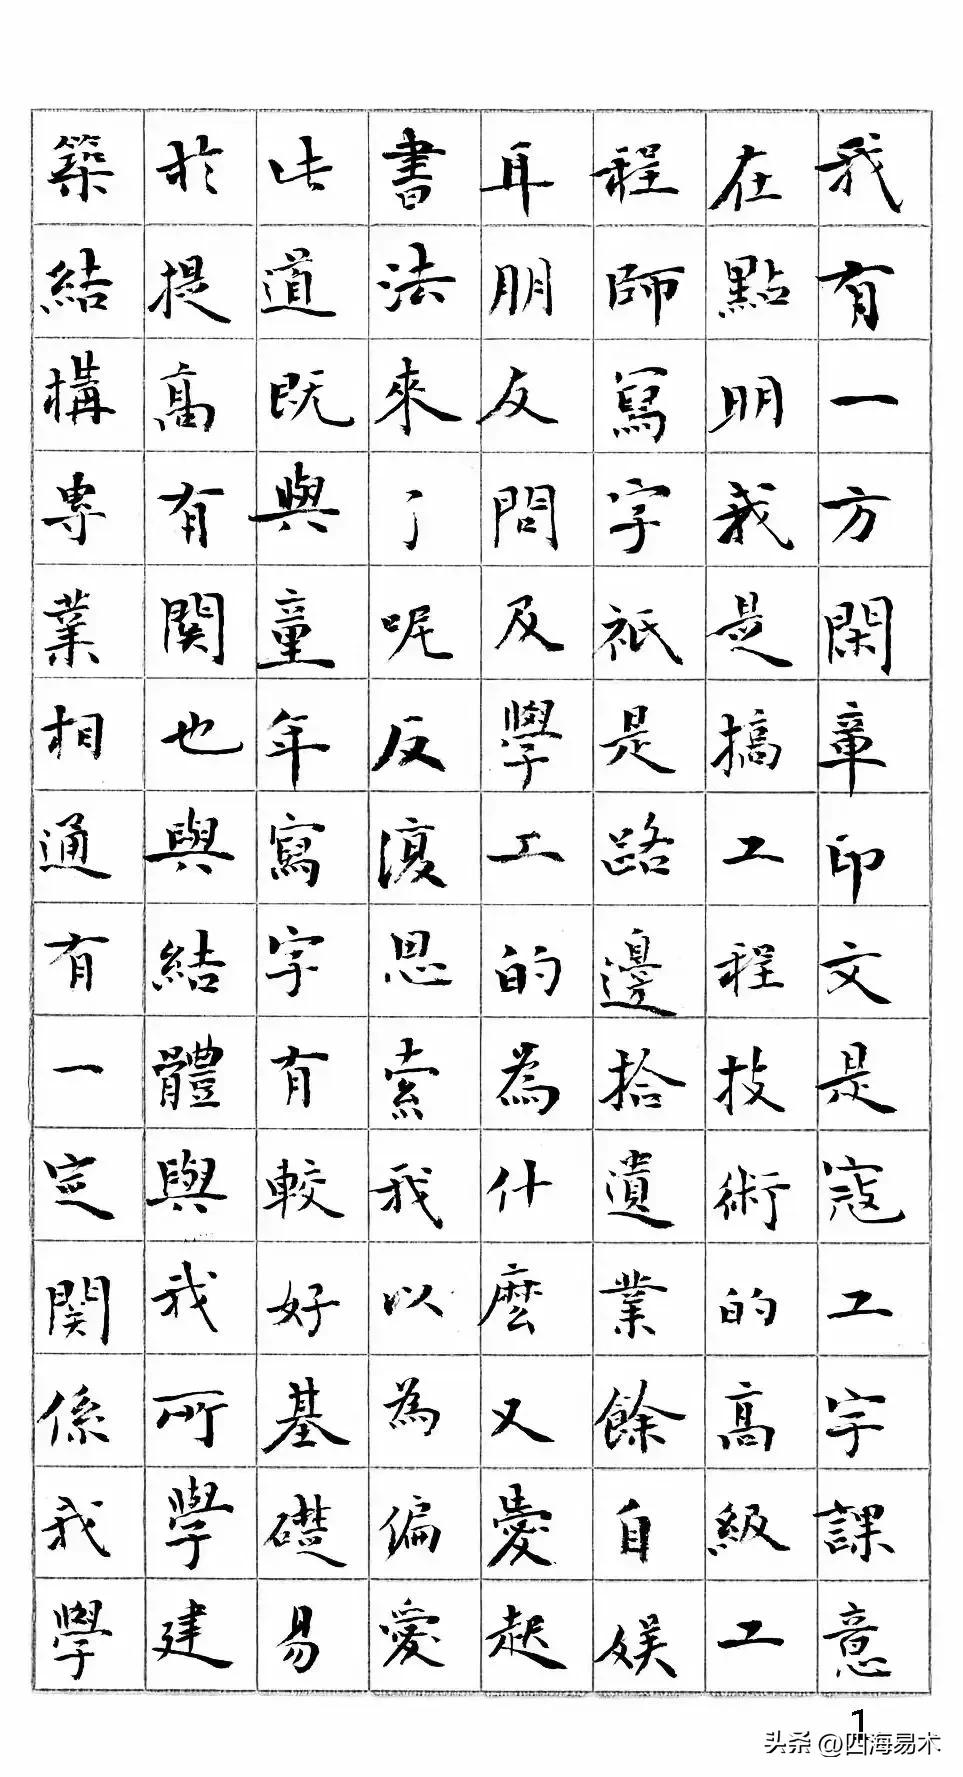 我有一方閑章印文是寇工字課意
在點明我是搞工程技術的高級工
程師寫字衹是路邊拾遺業餘自娛
耳朋友問及學工的為什麼又愛起
書法來了呢反復思索我以為偏愛
此道既與童年寫字有較好基礎易
於提高有関也與結體與我所學建
築結構專業相通有一定関係我學
1
头条 @四海易术